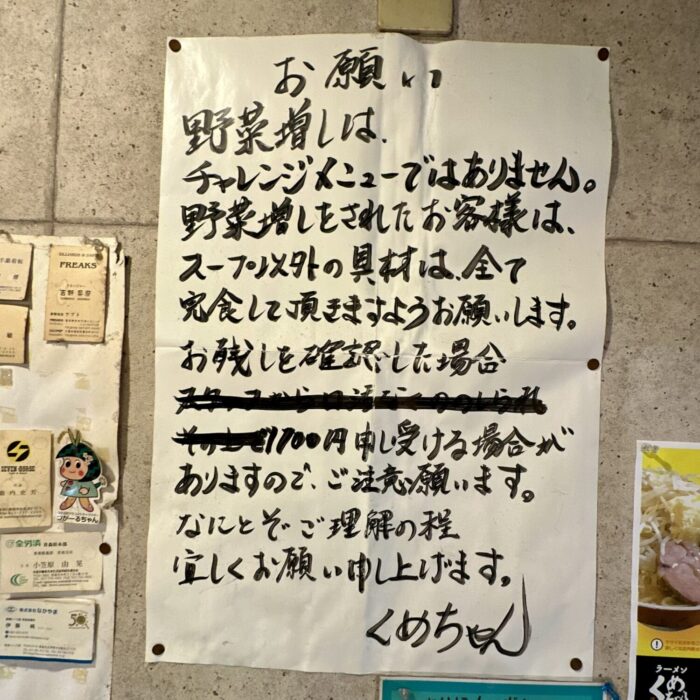 お願い
野菜増しは、
チャレンジメニューではありません。
野菜増しをされたお客様は、
スープ以外の具材は、全て
完食して頂きますようお願いします。
お残しを確認した場合
1700円申し受ける場合が
ありますので、ご注意願います。
なにとぞご理解の程
宜しくお願い申し上げます。
くめちゃん
FREAKS
SEVEN HORSE
つがーるちゃん
全労済
小笠原 由晃
株式会社なかやま
伊藤
ラーメン
くめちゃん